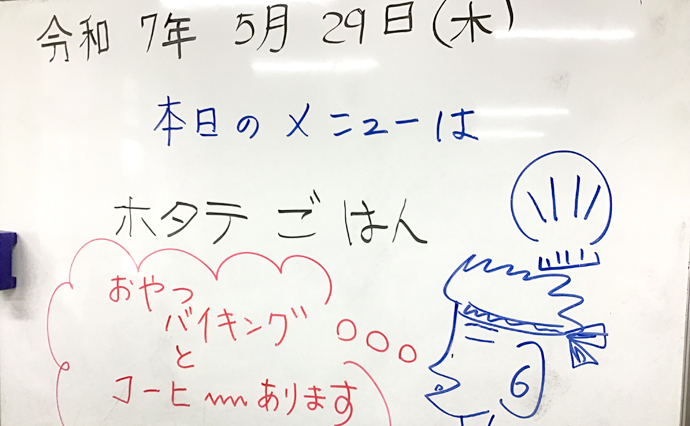 令和 7年 5月 29日(木)
本日の メニューは
ホタテ ごはん
おやつ
バイキング
と
コーヒー あります